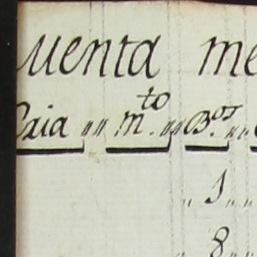 uenta me
Cria „ „ m.to „ „ B.os „ „
„ 1 „ „
„ 8 „ „